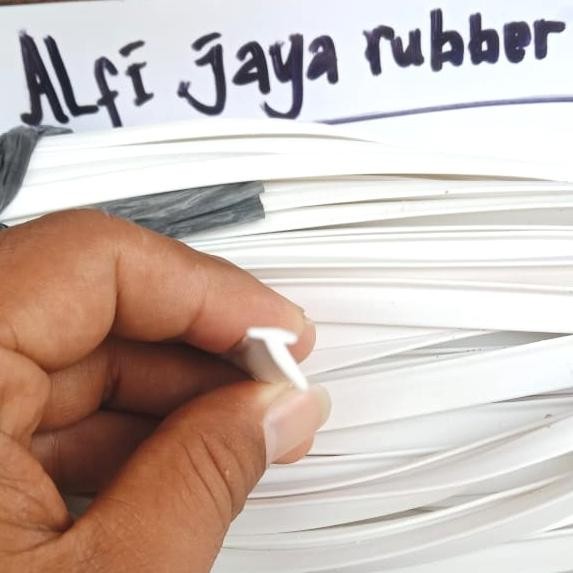 ALfi jaya rubber